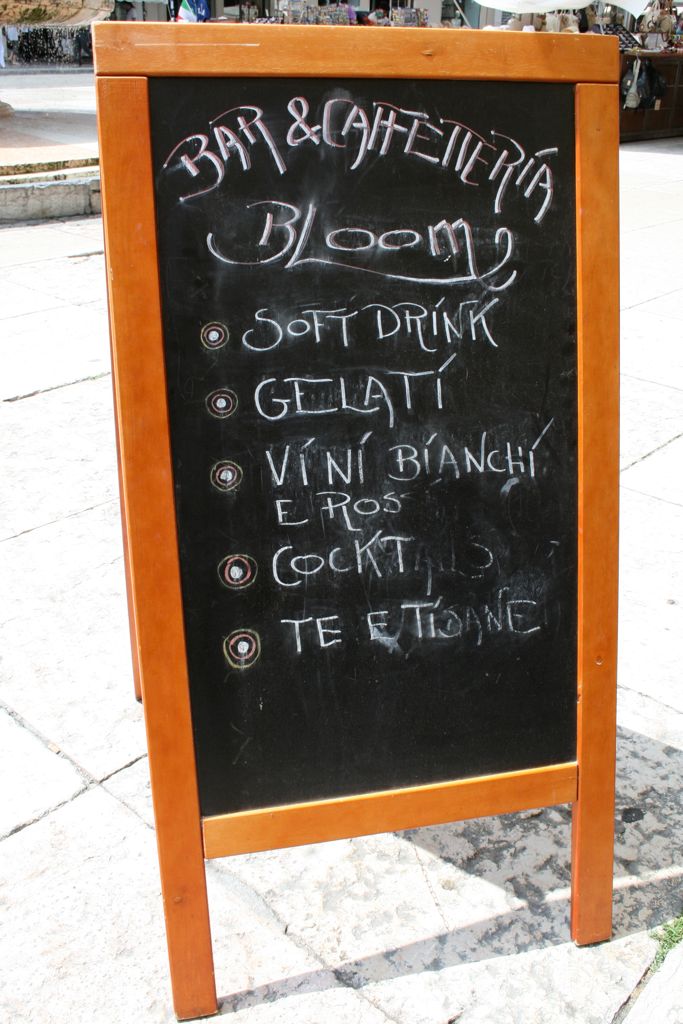 BAR & CAFFETTERÍA
BLOOM
SOFT DRÍNK
GELATÍ
VÍNÍ BÍANCHÍ
E ROSS
COCKTAILS
TE E TÍSANE